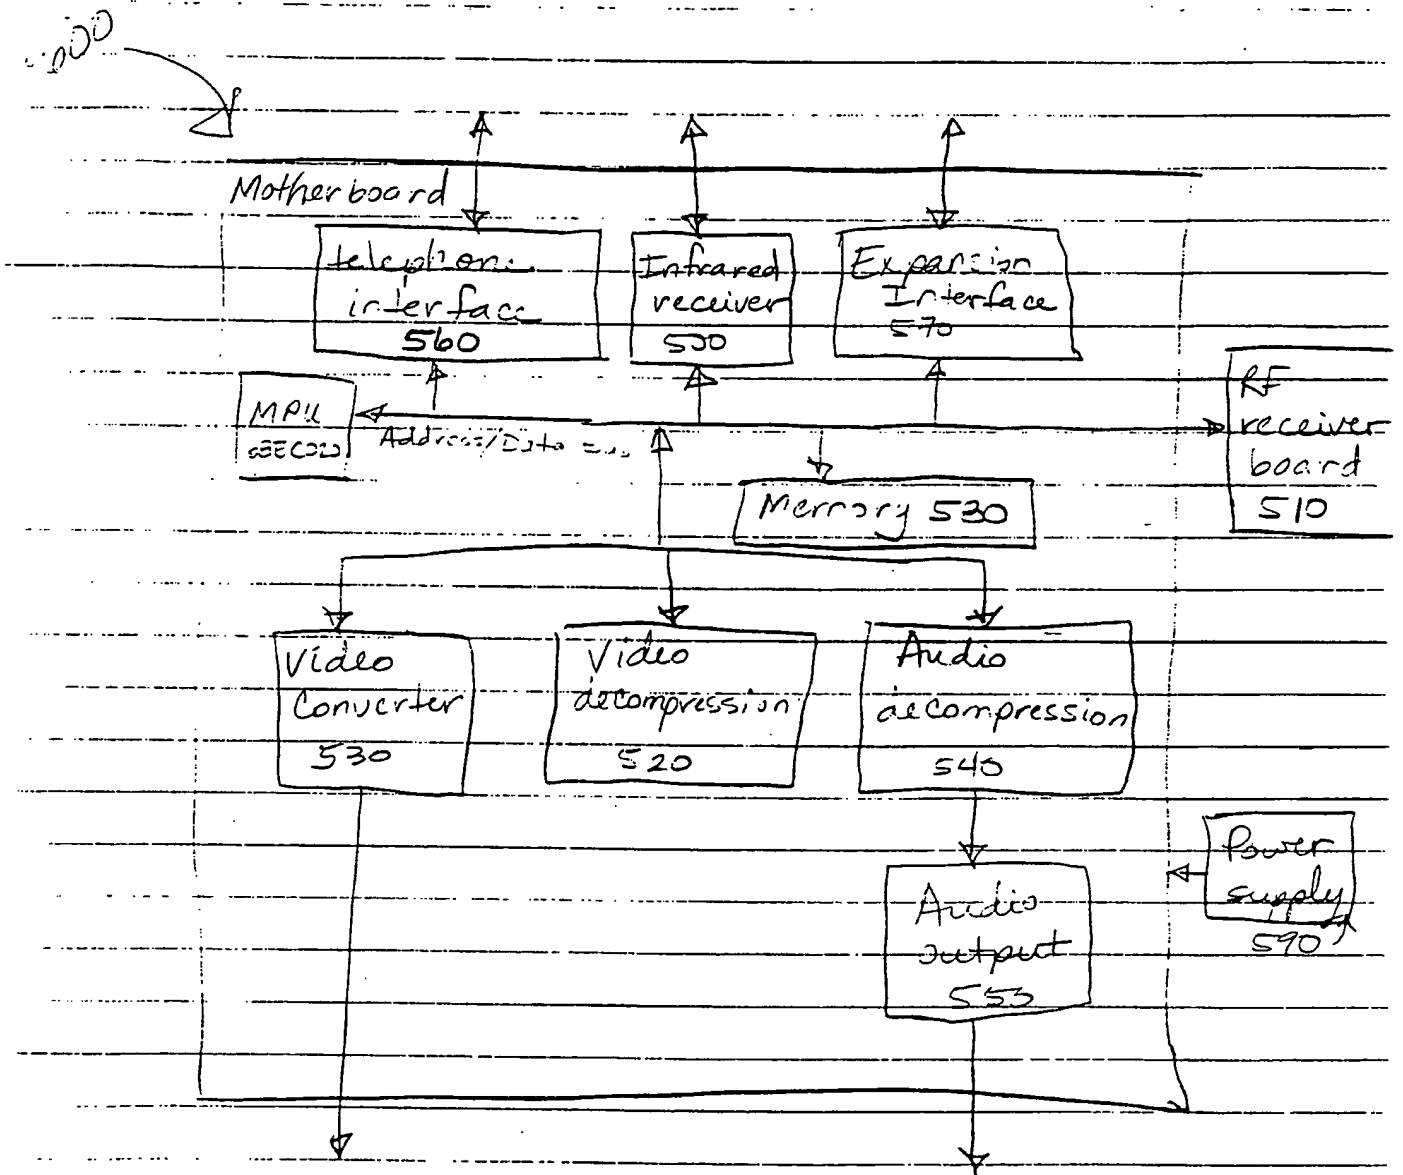 Motherboard
telephone
interface
560
Infrared
receiver
Expansion
Interface
570
MPU
Address/Data
RF
receiver
board
510
Memory 530
Video
Converter
530
Video
decompression
520
Audio
decompression
540
Power
supply
590
Audio
output